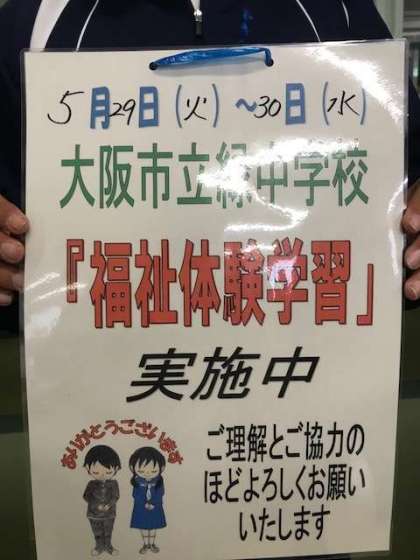 5月29日(火)~30日(水)
大阪市立緑中学校
『福祉体験学習』
実施中
ありがとうございます
ご理解とご協力の
ほどよろしくお願い
いたします